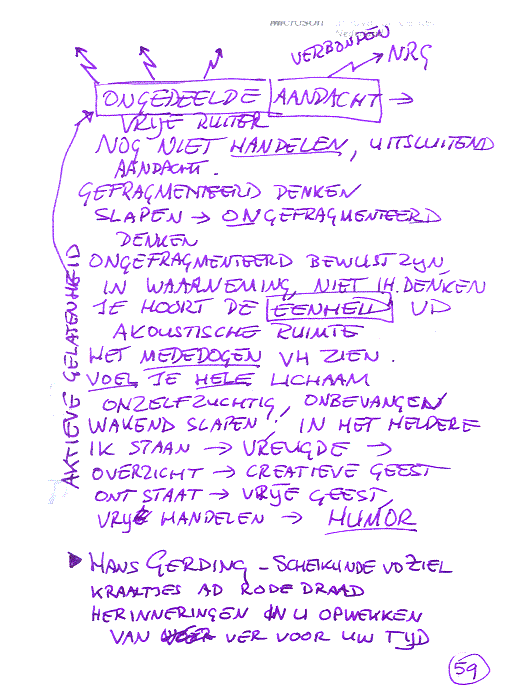 Microsoft
VERBONDEN
NRG
ONGEDEELDE AANDACHT →
VRIJE RUITER
NOG NIET HANDELEN, UITSLUITEND
AANDACHT.
GEFRAGMENTEERD DENKEN
SLAPEN → ONGEFRAGMENTEERD
DENKEN
ONGEFRAGMENTEERD BEWUSTZYN,
IN WAARNEMING, NIET IH. DENKEN
JE HOORT DE EENHEID VD
AKOUSTISCHE RUIMTE
HET MEDEDOGEN VH ZIEN.
VOEL JE HELE LICHAAM
ONZELFZUCHTIG, ONBEVANGEN
WAKEND SLAPEN!, IN HET HELDERE
IK STAAN → VREUGDE →
OVERZICHT → CREATIEVE GEEST
ONTSTAAT → VRIJE GEEST,
VRIJ HANDELEN → HUMOR
AKTIEVE GELATENHEID
▶ HANS GERDING – SCHEIKUNDE VD ZIEL
KRAALTJES AD RODE DRAAD
HERINNERINGEN IN U OPWEKKEN
VAN VER VOOR UW TIJD
59